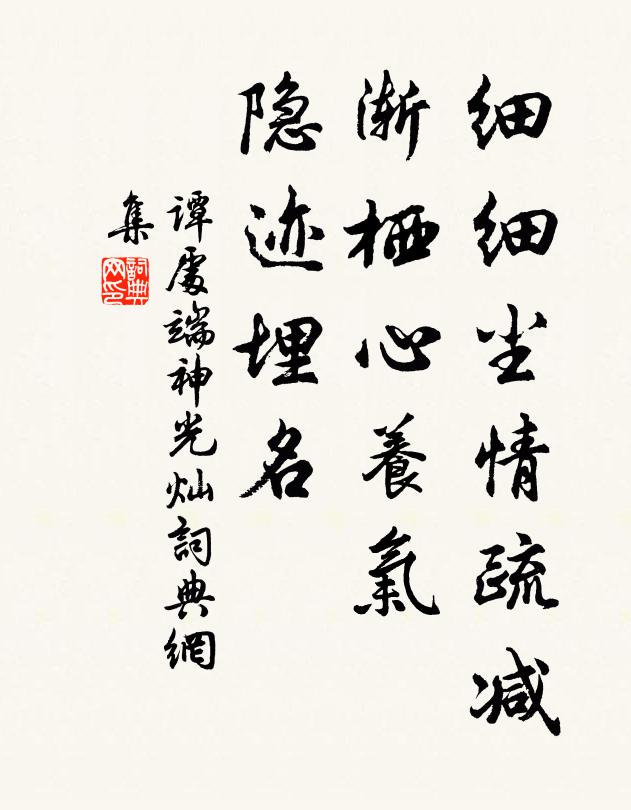 细细尘情疏减
渐栖心養氣
隐迹埋名
譚處端神光灿詞典網
集
詞典网印